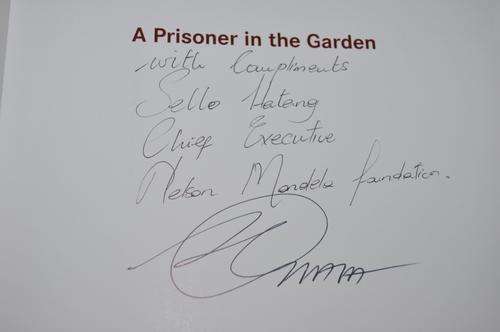 A Prisoner in the Garden
with Compliments
Sello Hatang
Chief Executive
Nelson Mandela Foundation.